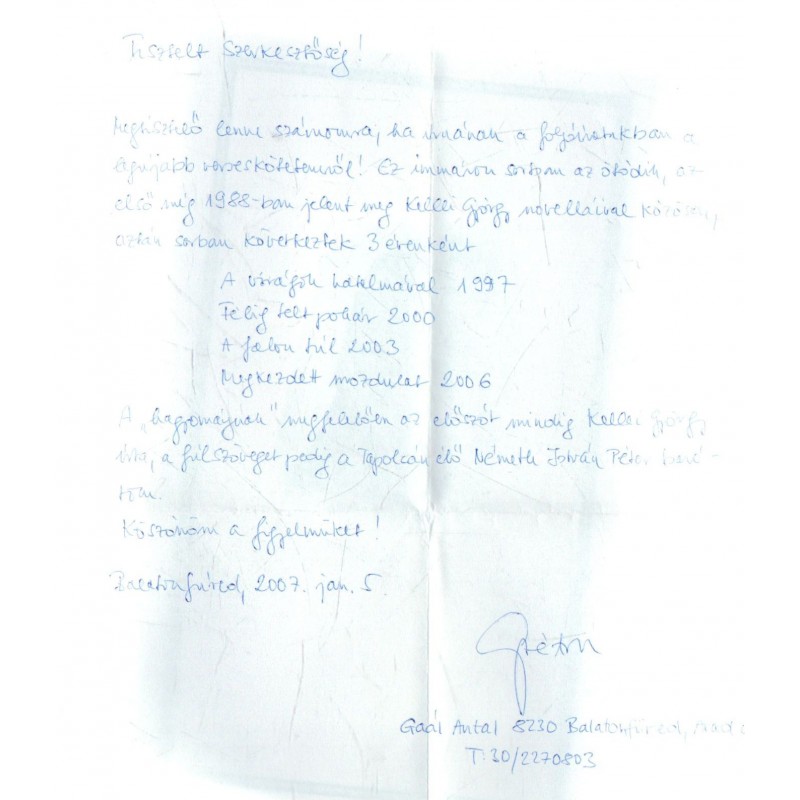 Tisztelt Szerkesztőség!
Megtisztelő lenne számomra, ha írnának a folyóiratukban a
legújabb verseskötetemről! Ez immáron sorban az ötödik, az
első még 1988-ban jelent meg Kellei György novelláival közösen,
aztán sorban következtek 3 évenként
A virágok hatalmával 1997
Félig telt pohár 2000
A falon túl 2003
Megkezdett mozdulat 2006
A „hagyománynak" megfelelően az előszót mindig Kellei György
írta, a fülszöveget pedig a Tapolcán élő Németh István Péter bará-
tom.
Köszönöm a figyelmüket!
Balatonfüred, 2007. jan. 5.
Gaál Antal 8230 Balatonfüred,
T: 30/2270803